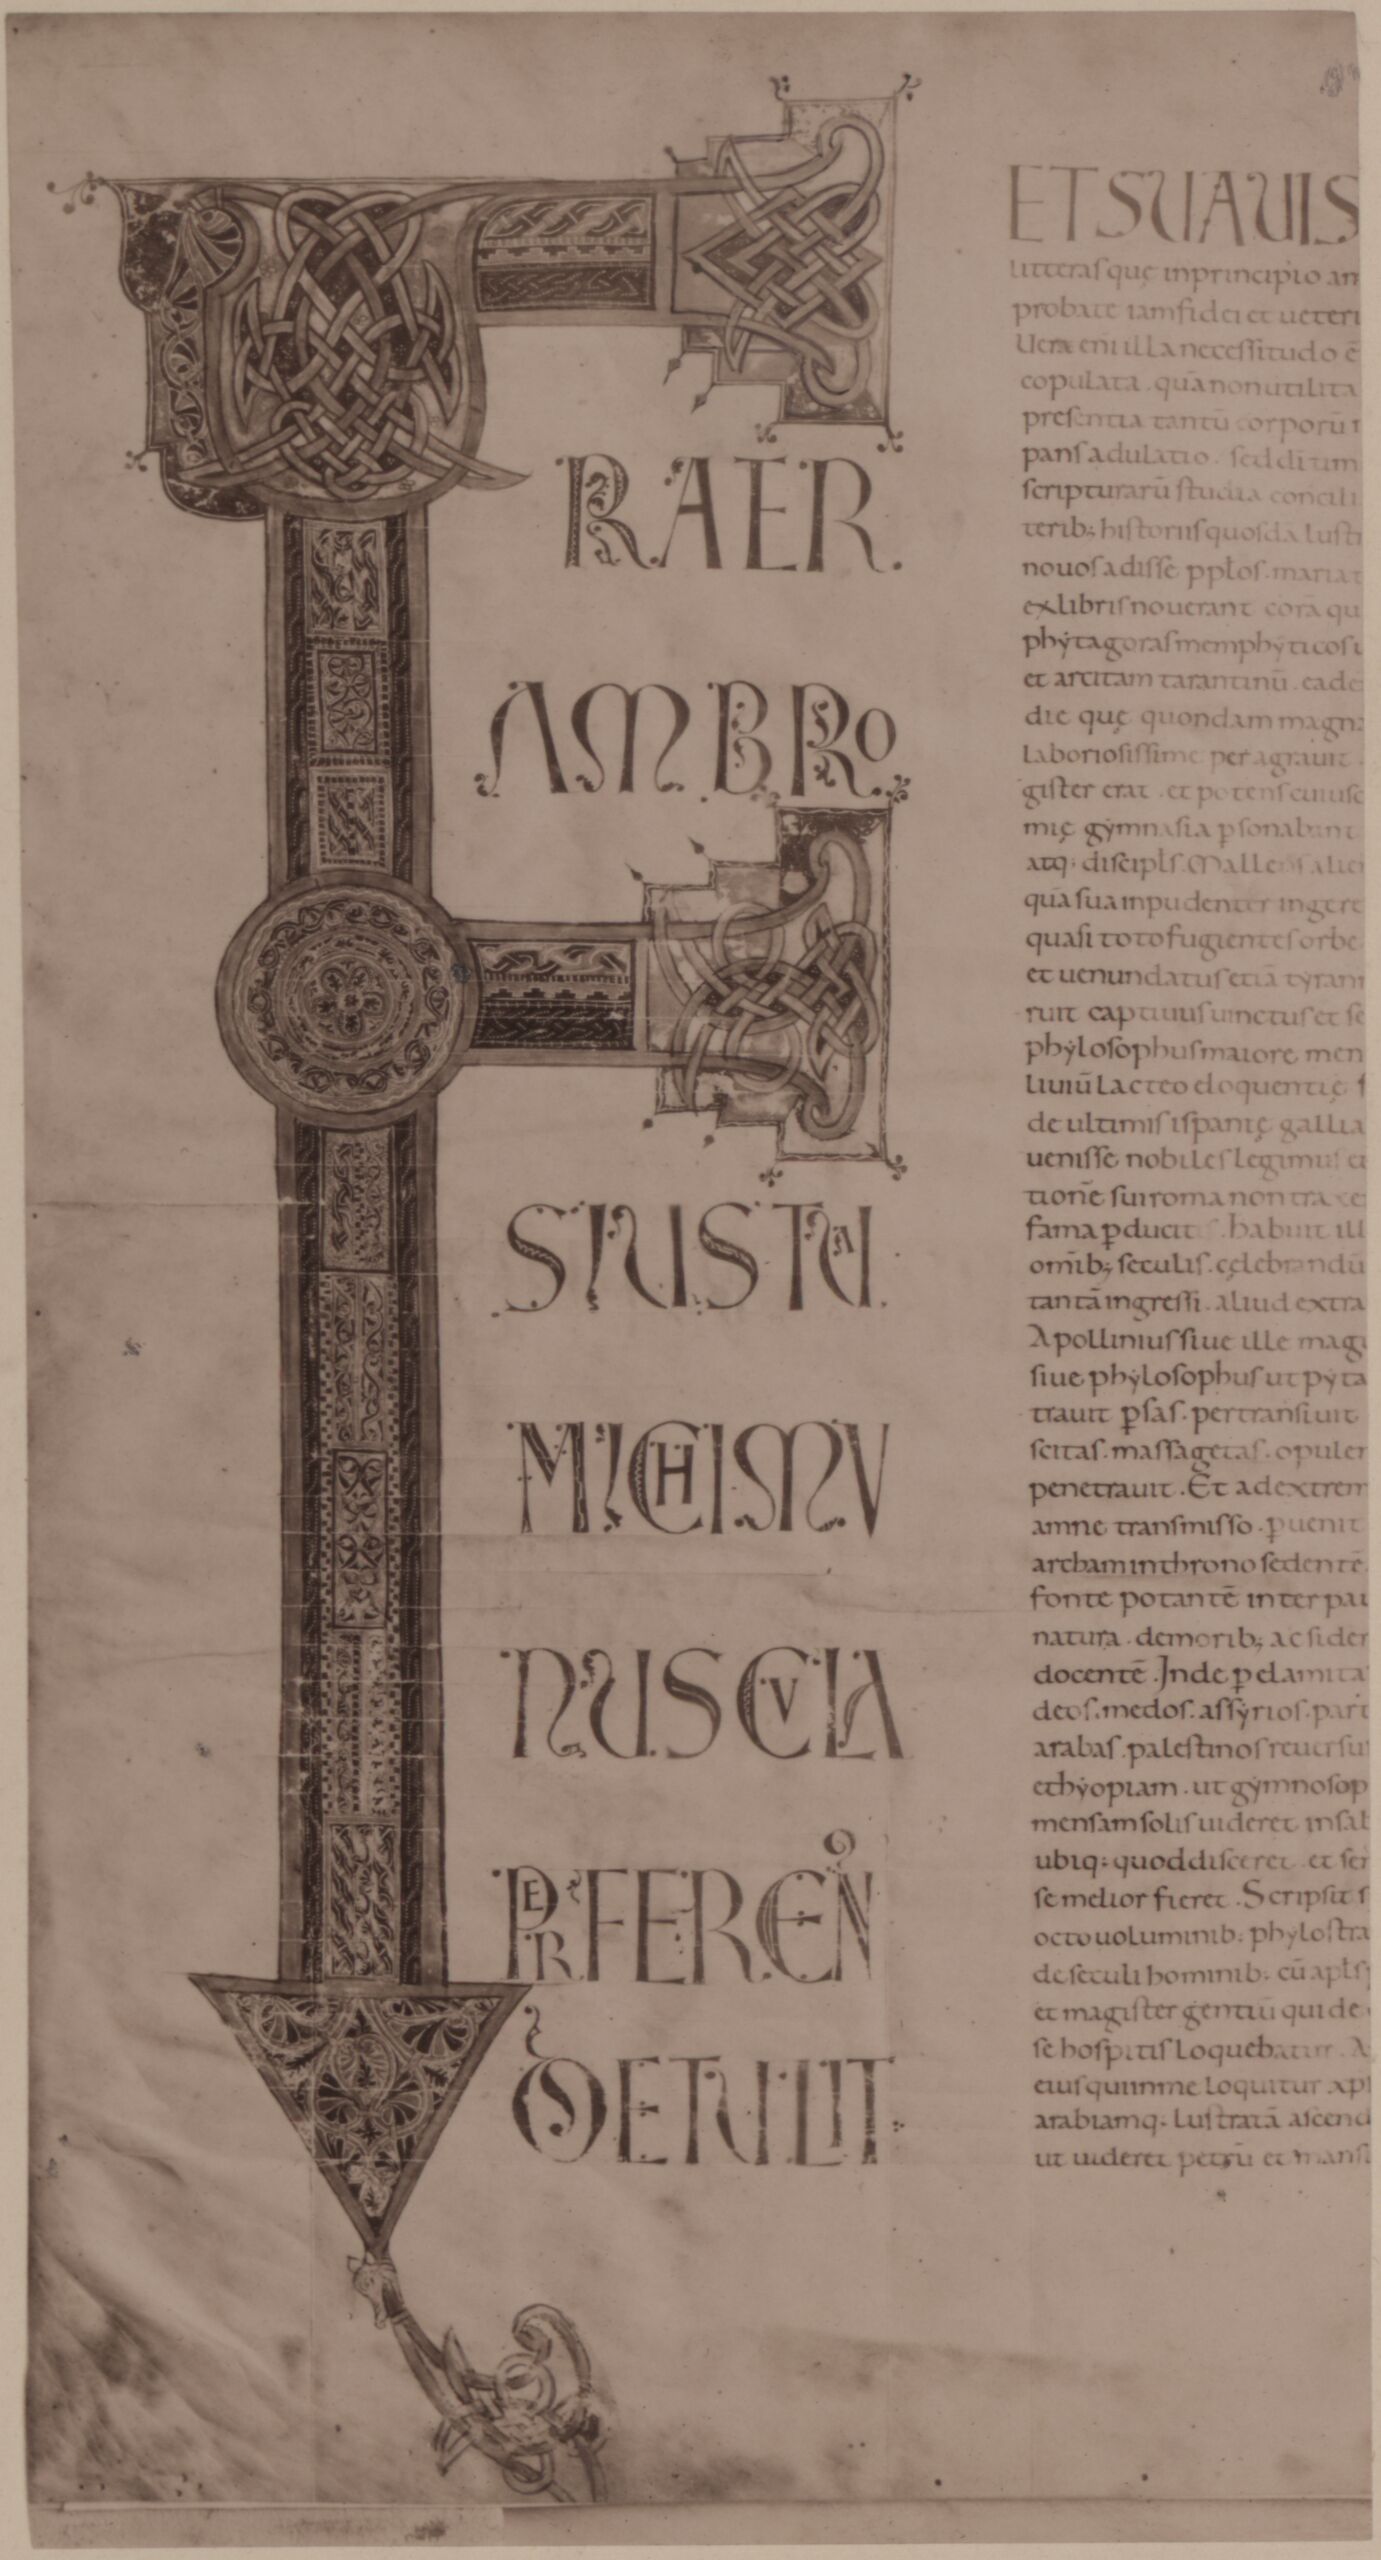 F
RATER.
AMBRO
SIUSTUA
MICHIMU
NUSCULA
PERFEREN
S DETULIT
ETSUAUIS
litteras quę inprincipio am
probate iam fidei et ueteri
Uera eni illa necessitudo ē
copulata . quā non utilita
presentia tantū corporū
pans adulatio . sed di tim
scripturarū studia concili
terib; historiis quosdā lustr
nouos adisse pplos . maria t
ex libris nouerant corā qu
phẏtagoras memphẏticos
et arcitam tarantinū . eade
die quę quondam magna
laboriosissime peragrauit .
gister erat . et potens cuiusc
mię gẏmnasia psonabant
atq; discipls . Mallens alie
quā sua inpudenter ingere
quasi toto fugientes orbe
et uenundatus etiā tẏrann
ruit captiuus uinctus et se
phẏlosophus maiore men
liuiū lacteo eloquentię f
de ultimis ispanię gallia
uenisse nobiles legimus et
tionē sui roma non traxe
fama pducit . habuit ill
omīb; seculis . cęlebrandū
tantā ingressi . aliud extra
Apollinius siue ille magu
siue phẏlosophus ut pẏta
trauit psas . pertransiuit
scitas . massagetas . opulen
penetrauit . Et ad extrem
amne transmisso . puenit
archam in throno sedentē
fonte potantē inter pau
natura . de morib; ac sider
docentē . Inde p elamita
deos . medos . assẏrios . part
arabas . palestinos reuersus
ethẏopiam . ut gẏmnosop
mensam solis uideret in sab
ubiq; quod disceret . et sem
se melior fieret . Scripsit s
octo uoluminib; phẏlostra
de seculi hominib; cū apls
et magister gentiū qui de
se hospitis loquebatur . A
eius qui in me loquitur xp
arabiamq; lustratā ascend
ut uideret petrū et mansi